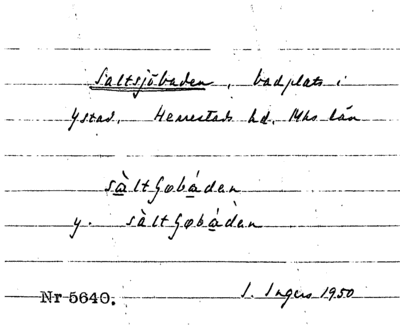 Saltsjöbaden, badplats i
Ystad, Herrestads hd. Mhs län
sàltʃøbáden
y. sàltʃøbáden
Nr 5640. I. Ingers 1950